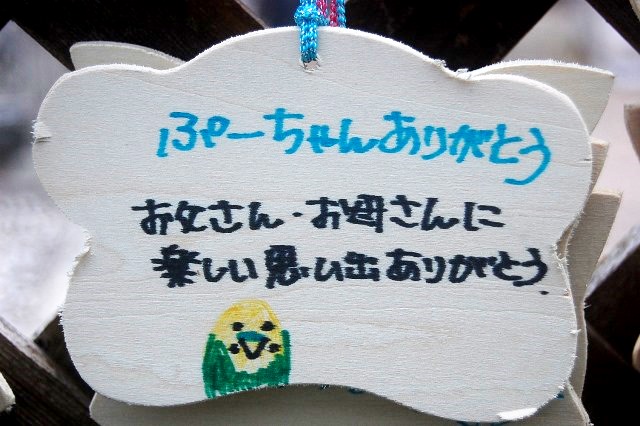 ふぅーちゃんありがとう
お父さん・お母さんに
楽しい思い出ありがとう.